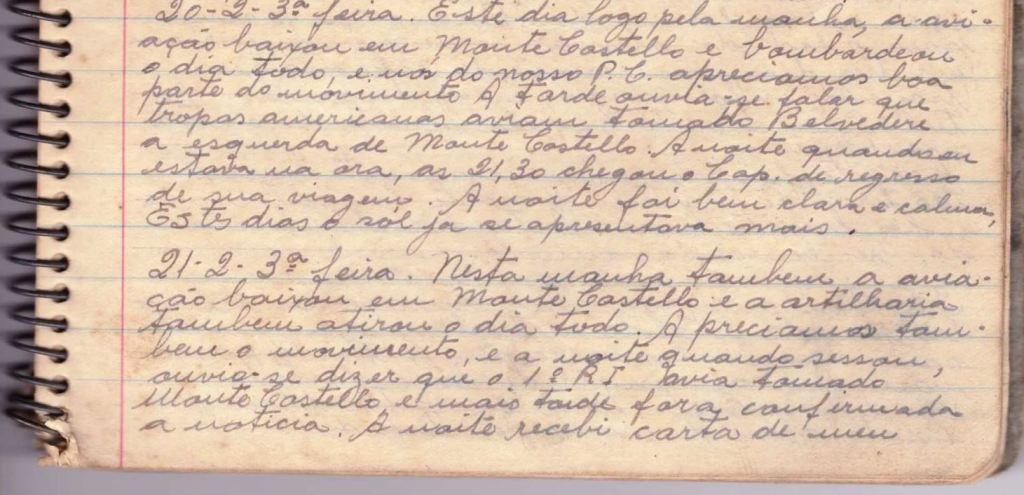 20-2-3ª feira. Este dia logo pela manha, a avi-
ação baixou em Monte Castello e bombardeou
o dia todo, e nós do nosso P.C. apreciamos boa
parte do movimento A tarde ouvia-se falar que
tropas americanas aviam tomado Belvedere
a esquerda de Monte Castello. A noite quando eu
estava na ora, as 21,30 chegou o Cap. de regresso
de sua viagem. A noite foi bem clara e calma,
Estes dias o sol ja se apresentava mais.
21-2-3ª feira. Nesta manha tambem a avia-
ção baixou em Monte Castello e a artilharia
tambem atirou o dia todo. Apreciamos tam-
bem o movimento, e a noite quando sessou,
ouvio-se dizer que o 1º RI avia tomado
Monte Castello e mais tarde fora confirmada
a noticia. A noite recebi carta de meu